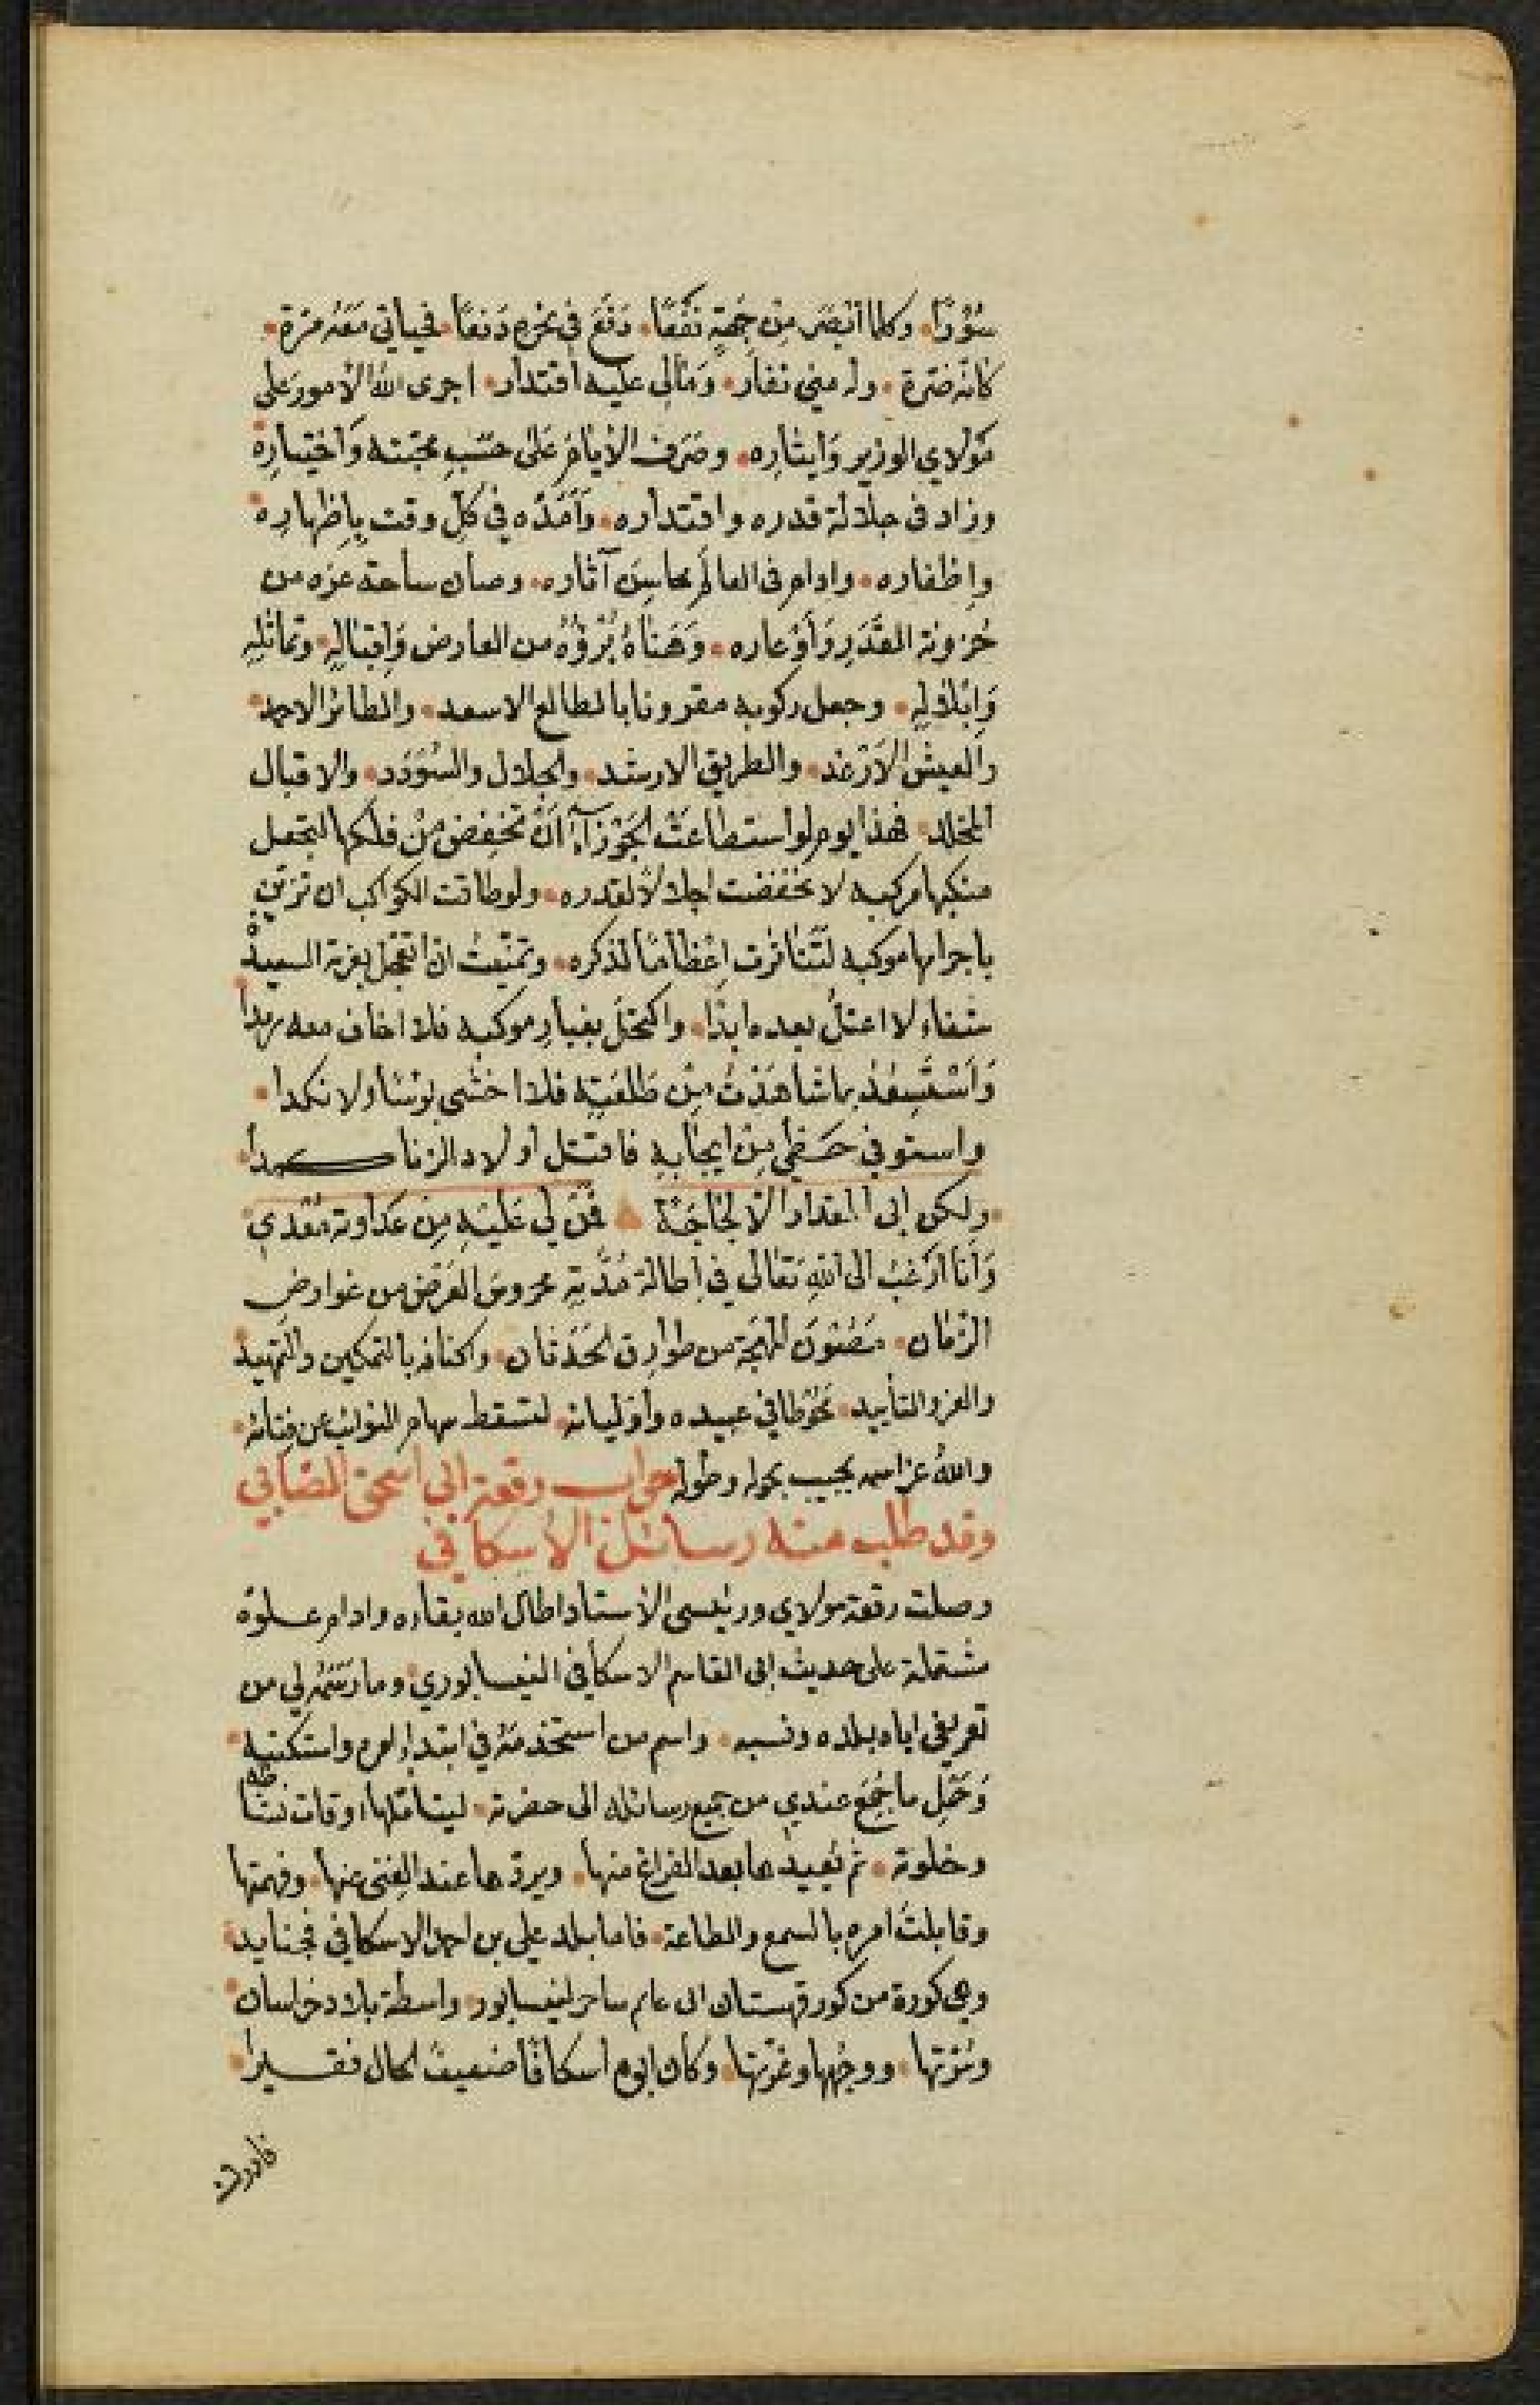 سُؤْرًا وكلما ابصر من جهة نفعًا دَفَعَ في نحره دَفعًا فحياتي مَعَهُ مُرّة
كانّه ضَرة وله مني نفار وَمالي عليه اقتدار اجرى الله الامور على
مَولاي الوزير وَايثاره وصَرَف الايام على حسَبِ محبّته وَاختياره
وزاد فى جلالة قدره واقتداره وَأمدّه في كلّ وقت بإظهاره
وإظفاره وادام فى العالم محاسِن آثاره وصان ساحة عزه من
حُزونة القدَرِ وَأوعاره وَهَناهُ بُرْؤهُ من العارض وَاقباله وتماثله
وَابلاله وجعل ركوبه مقرونا بالطالع الاسعد والطائر الاحمد
والعيش الاَرْغد والطريق الارشد والجلال والسُؤدَد والاقبال
المخلد فهذا يوم لو استطاعَتْ الجَوزآء اَنْ تنخفض مِنْ فلكها لتجعل
منكبها مركبه لانخفضت اجلالًا لقدره ولو طاقت الكواكب ان تزيّن
باجرامها موكبه لَتَناثرت اِعْظامًا لذكره وتمنّيتُ انْ اتعجل بغرته السعيدة
شفاء لا اعتلُّ بعده ابدًا واكتحل بغبار موكبه فلا اخاف معه رمدا
وَاَسْتَسعِدُ بما شاهَدْتُ مِن طلعَتِه فلا اخشى بؤسًا ولا نكدا
واستوفي حَظّي مِنْ ايجابه فاقتل اولاد الزنا كمدا
ولكن ابى المقدار الا لجاجَةً فَمَن لي عَليْهِ مِن عَداوته مُعْدي
وَانَا ارْغبُ الى الله تعالى في اطالة مُدّته محروسَ العَرَض من عوارض
الزمان مَصُونَ المُهجَة من طوارق الحَدَثان واكنافه بالتمكين والتمهيد
والعز والتأييد مَحُوطا في عبيده وأوليائه لتسقط سهام النوائب عن فنائه
والله عز اسمه يجيب بحوله وطَوله جواب رقعة ابي اسحق الصابي
وقد طلب منه رسائل الاسكافي
وصلت رقعة مولاي ورئيسى الاستاد اطال الله بقاءه وادام علوّه
مشتملة على حديث ابى القاسم الاسكافى النيسابوري وما رَسَمَهُ لي من
تعريفى اياه بلده ونسبه واسم من استخدمَهُ في ابتداء امره واستكتبه
وَحَمْلِ ما جُمِعَ عندي من جميع رسائله الى حضرته ليتأمّلها اوقات نشاطه
وخلوته ثم يُعيدها بعد الفراغ منها ويردّها عند الغِنى عنها وفهمتها
وقابلتُ امره بالسمع والطاعة فاما بلد علي بن احمد الاسكافي فجنابد
وهى كورة من كور قهستان الى عالم ساحر لنيسابور واسطة بلاد خراسان
وسُرّتها ووجهها وغُرّتها وكان ابوه اسكافًا ضعيف الحال فقيرا